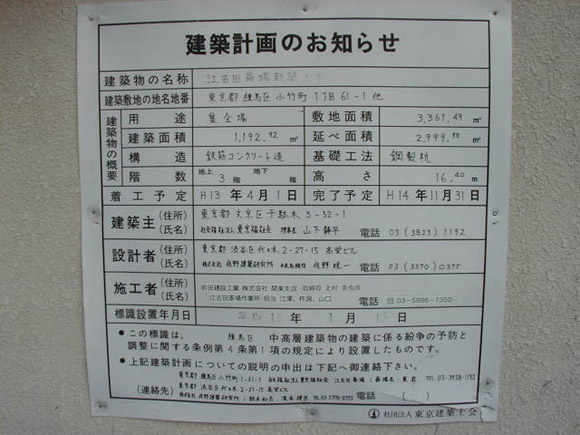 建築計画のお知らせ
建築物の名称 江古田斎場新築
建築敷地の地名地番 東京都 練馬区 小竹町 1丁目 61-1 他
建築物の概要
用途 集会場 敷地面積 3,361.49 ㎡
建築面積 1,192.92 ㎡ 延べ面積 2,999.95 ㎡
構造 鉄筋コンクリート造 基礎工法 鋼製杭
階数 地上 3 階 地下 階 高さ 16.40 m
着工予定 H13 年 4 月 1 日 完了予定 H14 年 11 月 31 日
建築主 (住所) 東京都 文京区 千駄木 3-52-1
(氏名) 理事長 山下 電話 03 (3823) 1192
設計者 (住所) 東京都 渋谷区 代々木 2-27-15 高栄ビル
(氏名) 株式会社 佐野建築研究所 佐野 電話 03 (3370) 0375
施工者 (住所) 前田建設工業 株式会社 関東支店 取締役 北村
(氏名) 江古田斎場作業所 担当 江澤、杵渕、山口 電話 03-5966-7350
標識設置年月日 平成 13 年 1 月 日
●この標識は、練馬区 中高層建築物の建築に係る紛争の予防と
調整に関する条例第4条第1項の規定により設置したものです。
●上記建築計画についての説明の申出は下記へ御連絡下さい。
東京都 練馬区 小竹町 1-61-1 TEL 03-3958-1192
(連絡先) 東京都 渋谷区 代々木 2-27-15 高栄ビル 電話 ( )
株式会社 佐野建築研究所
社団法人 東京建築士会